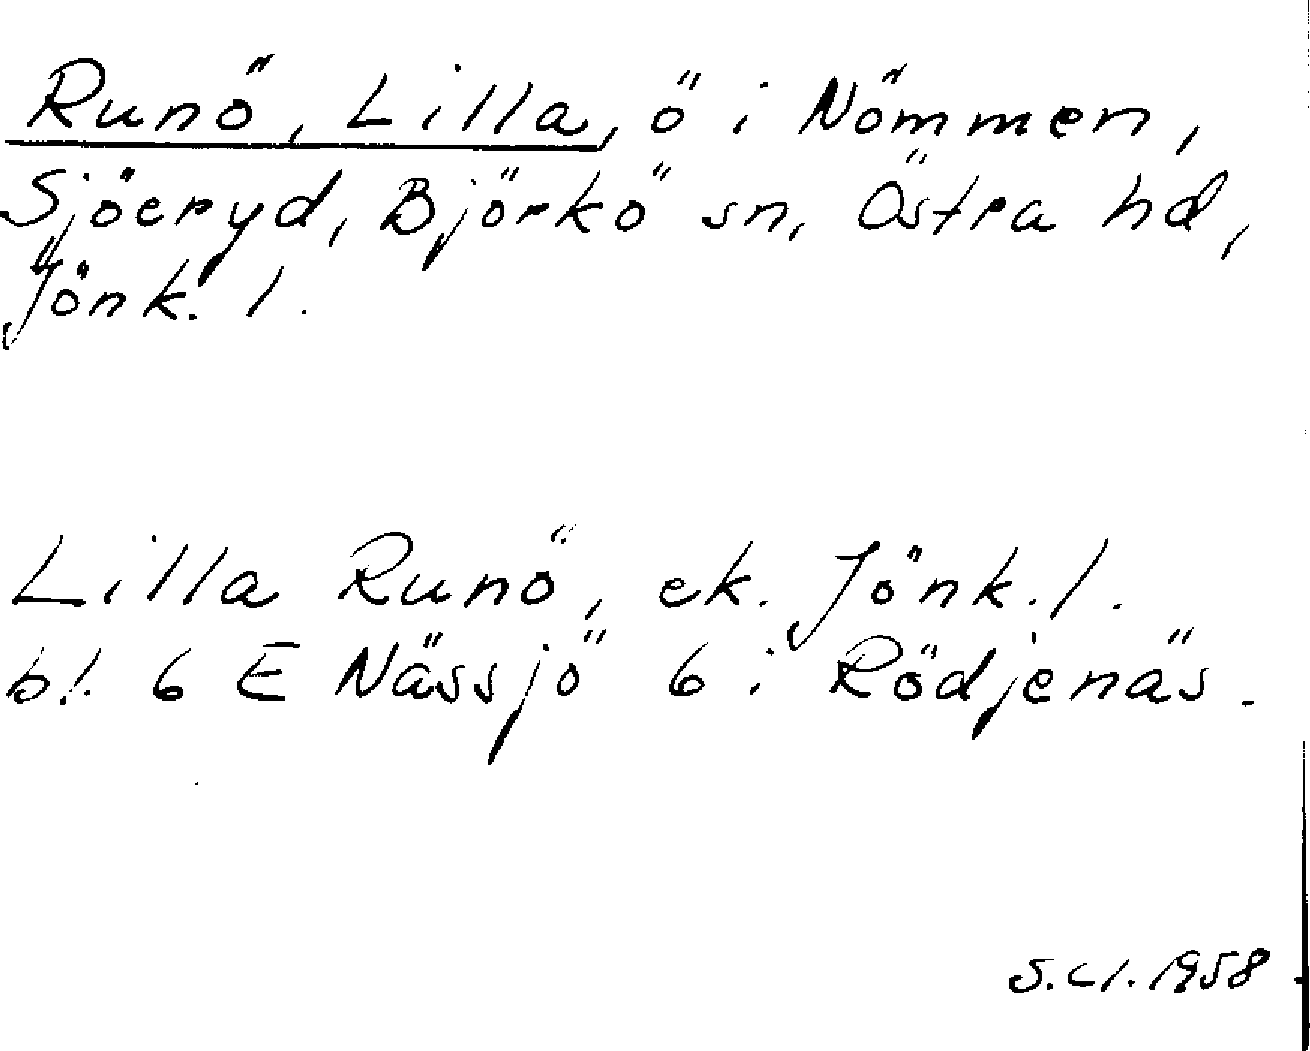 Runö, Lilla, ö i Nömmen,
Sjöeryd, Björkö sn, Östra hd,
Jönk. l.
Lilla Runö, ek. Jönk. l.
bl. 6 E Nässjö 6 i Rödjenäs.
S. Cl. 1958